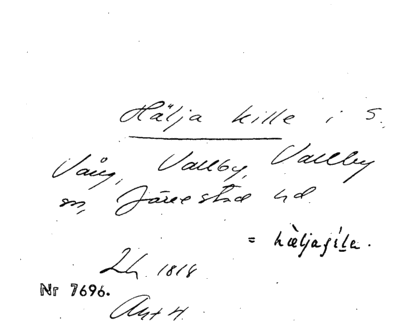 Hälja kille i S.
Vång, Vallby, Vallby
sn, Järrestad hd
= hæljaʃı̀la.
Lh 1818
Nr 7696.
Akt 4